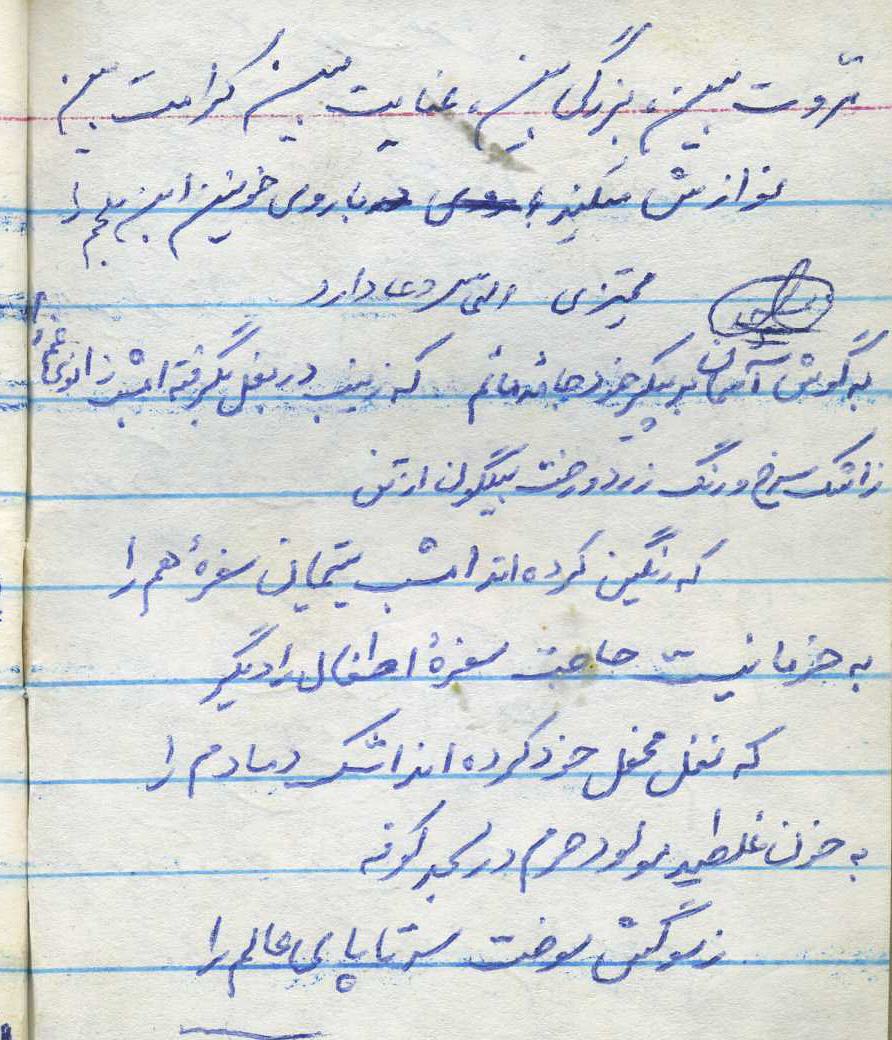 مروت بین، بزرگی بین، عنایت بین کرامت بین
نوازش میکند با روی خونین ابن ملجم را
الهی سر دعا دارد
به گوش آسمان پیکر خود جامه ماتم که زینب در بغل بگرفته امشب زانوی غم را
ز اشک سرخ و رنگ زرد و رخت نیلگون از تن
که رنگین کرده اند امشب یتیمان سفرهٔ هم را
به خرما نیست حاجت سفرهٔ اطفال را دیگر
که نقل محفل خود کرده اند اشک دمادم را
به خون غلطید مولود حرم در مسجد کوفه
ز سوگش سوخت سر تا پای عالم را